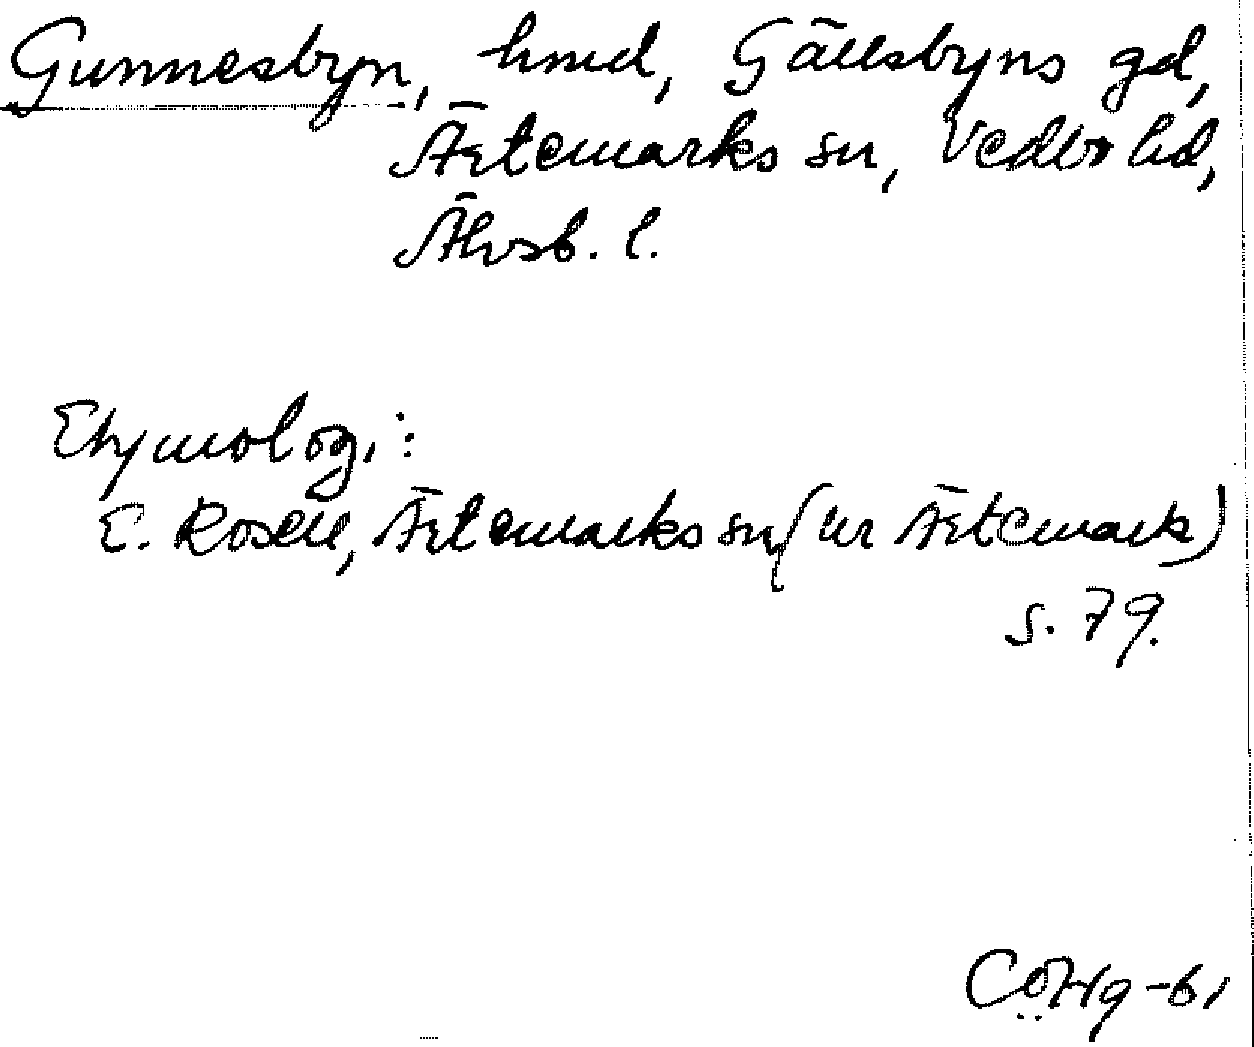 Gunnesbyn, hmd, Gällsbyns gd,
Ärtemarks sn, Vedbo hd,
Älvsb. l.
Etymologi:
E. Rosell, Ärtemarks sn (ur Ärtemark)
s. 79.
CÖHg-61